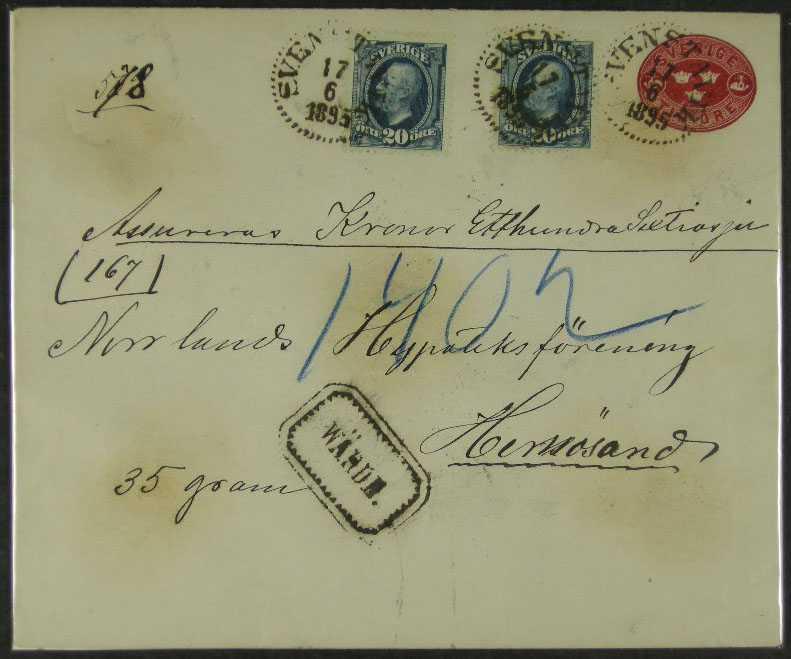 578
SVENST
17
6
1895
SVERIGE
ÖRE 20 ÖRE
SVENST
17
6
1895
ÖRE 20 ÖRE
SVENST
17
6
1895
SVERIGE
ÖRE
Assureras Kronor Etthundra Sextiosju
(167)
1402
Norrlands Hypoteksförening
Hernösand
WÄRDE.
35 gram